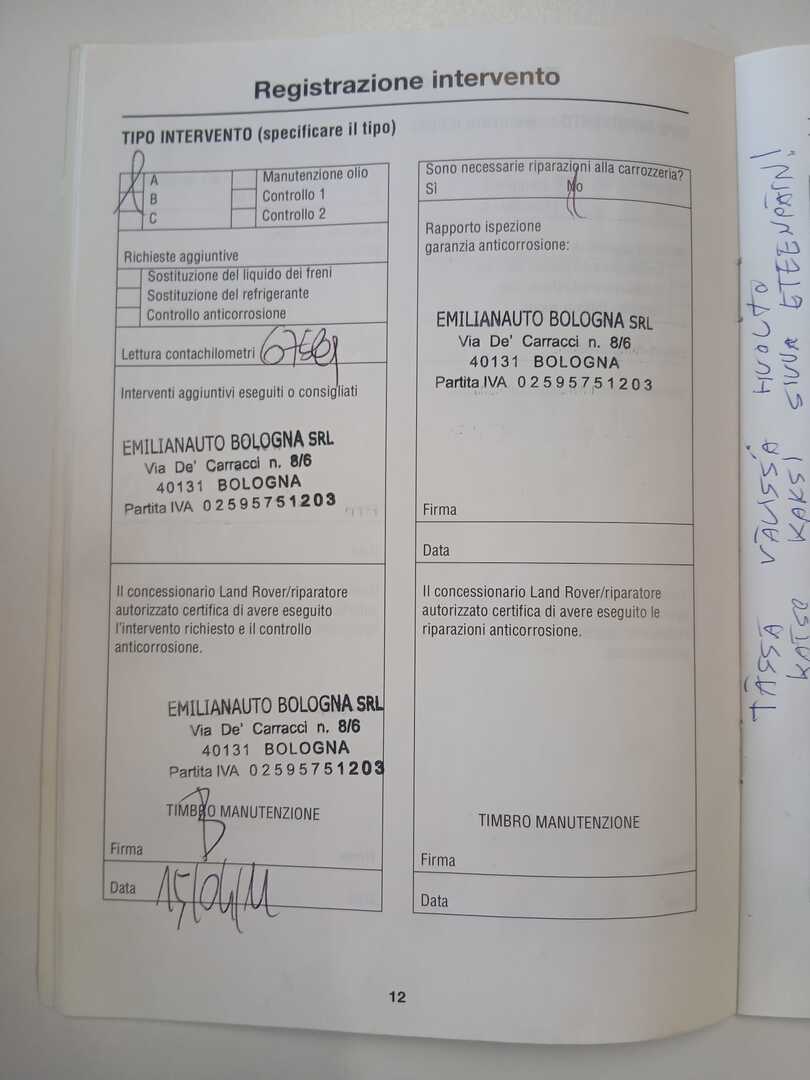 Registrazione intervento
TIPO INTERVENTO (specificare il tipo)
A
B
C
Manutenzione olio
Controllo 1
Controllo 2
Richieste aggiuntive
Sostituzione del liquido dei freni
Sostituzione del refrigerante
Controllo anticorrosione
Lettura contachilometri
Interventi aggiuntivi eseguiti o consigliati
EMILIANAUTO BOLOGNA SRL
Via De' Carracci n. 8/6
40131 BOLOGNA
Partita IVA 02595751203
Il concessionario Land Rover/riparatore
autorizzato certifica di avere eseguito
l'intervento richiesto e il controllo
anticorrosione.
EMILIANAUTO BOLOGNA SRL
Via De' Carracci n. 8/6
40131 BOLOGNA
Partita IVA 02595751203
TIMBRO MANUTENZIONE
Firma
Data 15/04/11
Sono necessarie riparazioni alla carrozzeria?
Sì No
Rapporto ispezione
garanzia anticorrosione:
EMILIANAUTO BOLOGNA SRL
Via De' Carracci n. 8/6
40131 BOLOGNA
Partita IVA 02595751203
Firma
Data
Il concessionario Land Rover/riparatore
autorizzato certifica di avere eseguito le
riparazioni anticorrosione.
TIMBRO MANUTENZIONE
Firma
Data
12
TÄSSÄ VÄLISSÄ HUOLTO
KATSO KAKSI SIVUA ETEENPÄIN!